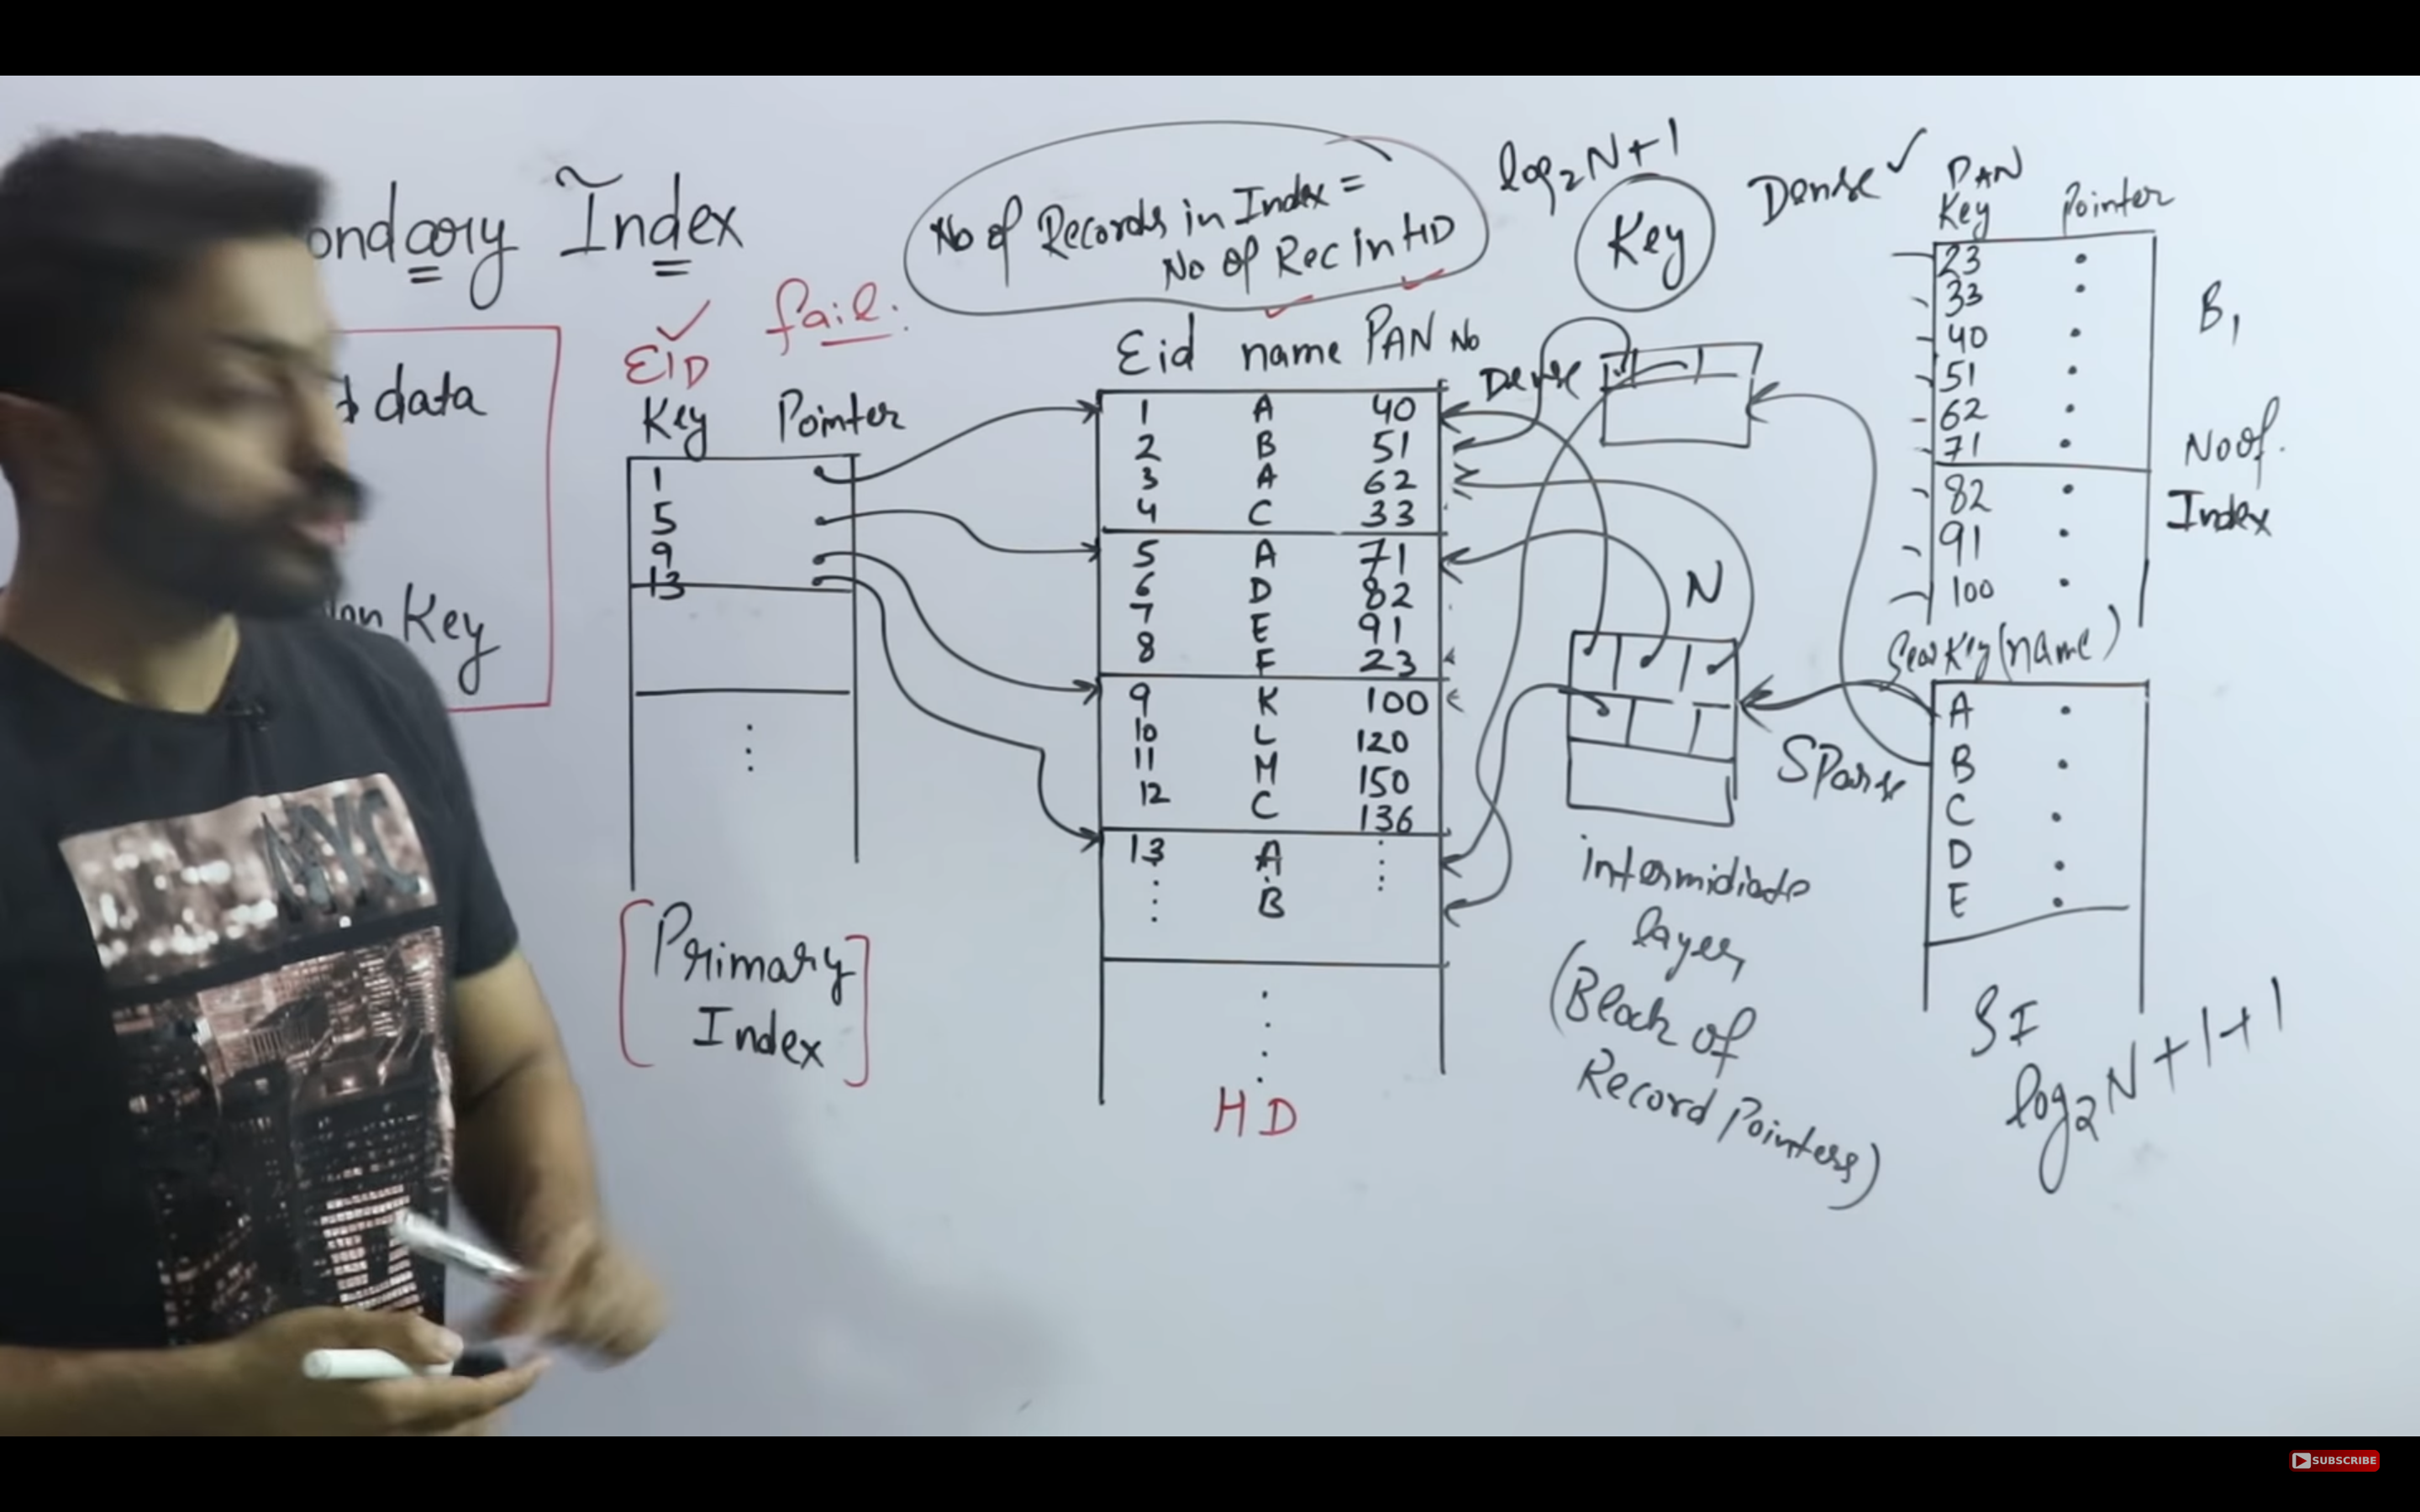 ondary Index
data
Key
EID
fail:
Key Pointer
1
5
9
13
[Primary
Index]
No of Records in Index =
No of Rec in HD
Eid name PAN No
1 A 40
2 B 51
3 A 62
4 C 33
5 A 71
6 D 82
7 E 91
8 F 23
9 K 100
10 L 120
11 M 150
12 C 136
13 A
B
HD
log2N+1
Key
Dense
Dense ✓
N
Sparse
intermidiate
layer
(Block of
Record Pointers)
PAN
Key Pointer
23
33
40
51
62
71
82
91
100
B1
No of.
Index
(name)
A
B
C
D
E
SI
log2N+1+1
NYC
SUBSCRIBE